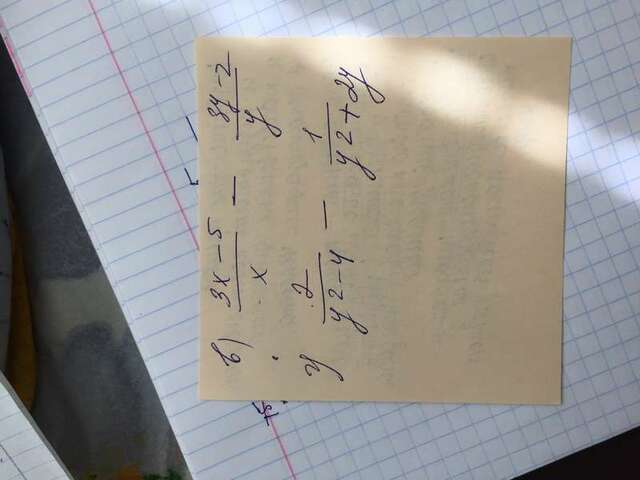 в) 3x-5/x - 3y-2/y
г) 2/y2-4 - 1/y2+2y